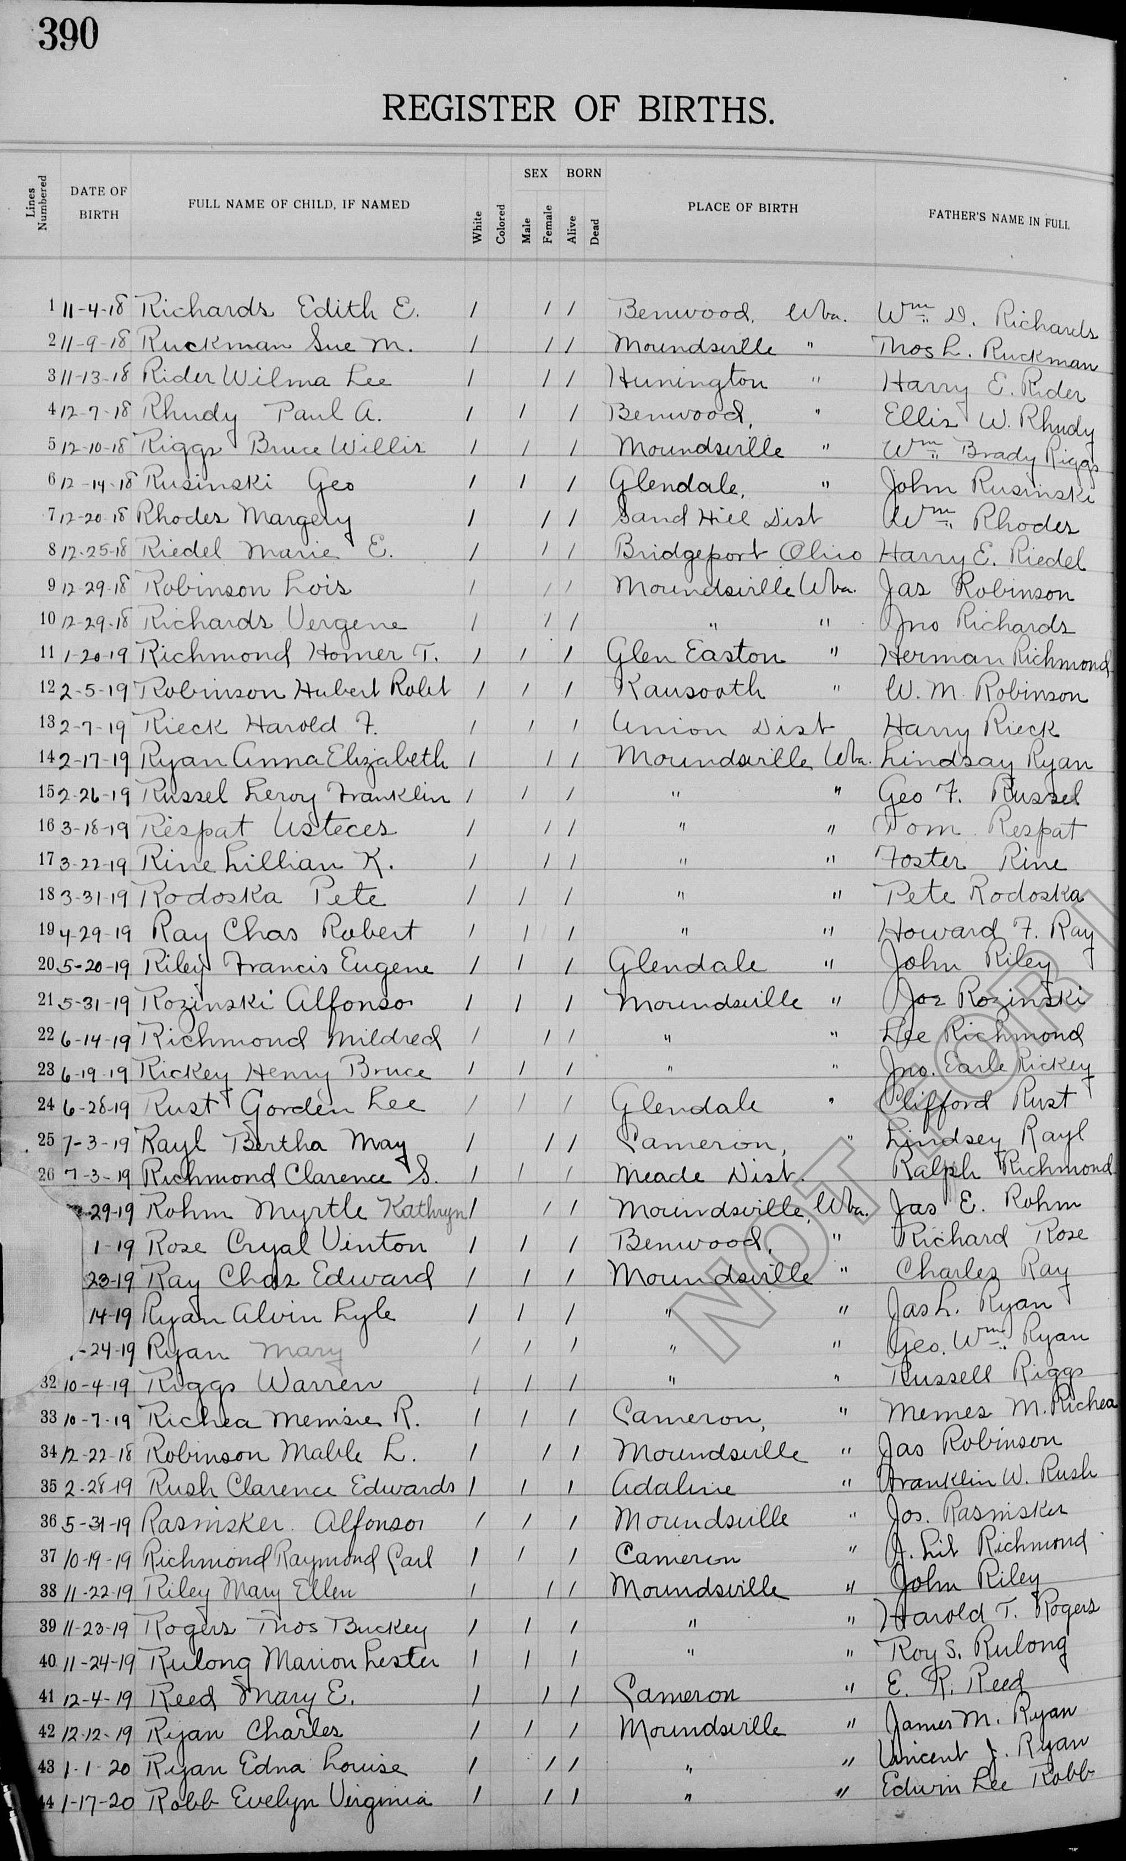 390
REGISTER OF BIRTHS.
Lines Numbered DATE OF BIRTH FULL NAME OF CHILD, IF NAMED White Colored SEX Male Female BORN Alive Dead PLACE OF BIRTH FATHER'S NAME IN FULL
1 11-4-18 Richards Edith E. / / / Benwood, Wva. Wm. D. Richards
2 11-9-18 Ruckman Sue M. / / / Moundsville " Thos L. Ruckman
3 11-13-18 Rider Wilma Lee / / / Hunington " Harry E. Rider
4 12-7-18 Rhudy Paul A. / / / Benwood, " Ellis W. Rhudy
5 12-10-18 Riggs Bruce Willis / / / Moundsville " Wm. Brady Riggs
6 12-14-18 Rusinski Geo / / / Glendale, " John Rusinski
7 12-20-18 Rhodes Margery / / / Sand Hill Dist Wm. Rhodes
8 12-25-18 Riedel Marie E. / / / Bridgeport Ohio Harry E. Riedel
9 12-29-18 Robinson Lois / / / Moundsville Wva. Jas Robinson
10 12-29-18 Richards Vergene / / / " " Jno Richards
11 1-20-19 Richmond Homer T. / / / Glen Easton " Herman Richmond
12 2-5-19 Robinson Hubert Robt / / / " W. M. Robinson
13 2-7-19 Rieck Harold F. / / / Union Dist Harry Rieck
14 2-17-19 Ryan Anna Elizabeth / / / Moundsville Wva. Lindsay Ryan
15 2-26-19 Russel Leroy Franklin / / / " " Geo F. Russel
16 3-18-19 Respat Usteces / / / " " Tom Respat
17 3-22-19 Rine Lillian K. / / / " " Foster Rine
18 3-31-19 Rodoska Pete / / / " " Pete Rodoska
19 4-29-19 Ray Chas Robert / / / " " Howard F. Ray
20 5-20-19 Riley Francis Eugene / / / Glendale " John Riley
21 5-31-19 Rozinski Alfonso / / / Moundsville " Joe Rozinski
22 6-14-19 Richmond Mildred / / / " " Lee Richmond
23 6-19-19 Rickey Henry Bruce / / / " " Jno. Earle Rickey
24 6-28-19 Rust Gorden Lee / / / Glendale " Clifford Rust
25 7-3-19 Rayl Bertha May / / / Cameron, " Lindsey Rayl
26 7-3-19 Richmond Clarence S. / / / Meade Dist. Ralph Richmond
29-19 Rohm Myrtle Kathryn / / / Moundsville, Wva. Jas E. Rohm
1-19 Rose Cryal Vinton / / / Benwood, " Richard Rose
23-19 Ray Chas Edward / / / Moundsville " Charles Ray
14-19 Ryan Alvin Lyle / / / " " Jas L. Ryan
-24-19 Ryan Mary / / / " " Geo. Wm. Ryan
32 10-4-19 Riggs Warren / / / " " Russell Riggs
33 10-7-19 Richea Memsie R. / / / Cameron, " Memes M. Richea
34 12-22-18 Robinson Mable L. / / / Moundsville " Jas Robinson
35 2-28-19 Rush Clarence Edwards / / / Adaline " Franklin W. Rush
36 5-31-19 Rasnisker Alfonso / / / Moundsville " Jos. Rasnisker
37 10-19-19 Richmond Raymond Carl / / / Cameron " J. Lit Richmond
38 11-22-19 Riley Mary Ellen / / / Moundsville " John Riley
39 11-23-19 Rogers Thos Buckey / / / " " Harold T. Rogers
40 11-24-19 Rulong Marion Lester / / / " " Roy S. Rulong
41 12-4-19 Reed Mary E. / / / Cameron " E. R. Reed
42 12-12-19 Ryan Charles / / / Moundsville " James M. Ryan
43 1-1-20 Ryan Edna Louise / / / " " Vincent J. Ryan
44 1-17-20 Robb Evelyn Virginia / / / " " Edwin Lee Robb
NOT FOR